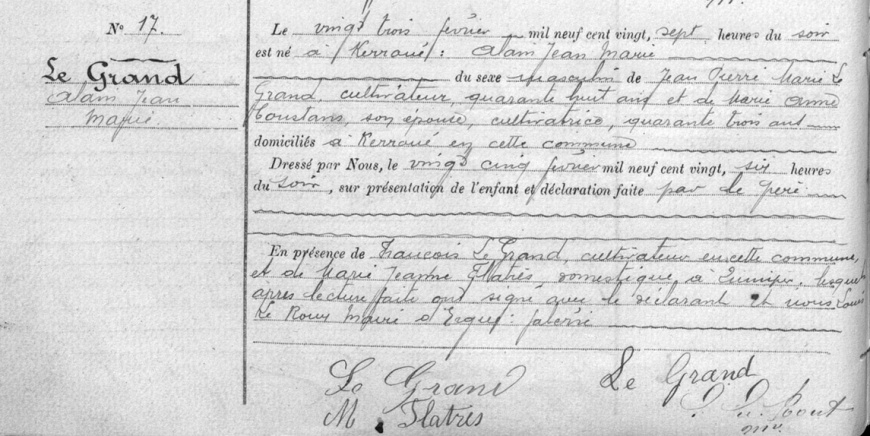 N° 17.
Le Grand
Alain Jean
Marie
Le vingt trois février mil neuf cent vingt, sept heures du soir
est né à Kerroué : Alain Jean Marie
du sexe masculin de Jean Pierre Marie Le
Grand, cultivateur, quarante huit ans et de Marie Anne
son épouse, cultivatrice, quarante trois ans
domiciliés à Kerroué en cette commune
Dressé par Nous, le vingt cinq février mil neuf cent vingt, six heures
du soir, sur présentation de l'enfant et déclaration faite par le père
En présence de Francois Le Grand, cultivateur en cette commune,
et de Marie Jeanne Flatrès, domestique, à Quimper, lesquels
après lecture faite ont signé avec le déclarant et nous Louis
Le Roux Maire d'Ergué:
Le Grand Le Grand
M. Flatrès